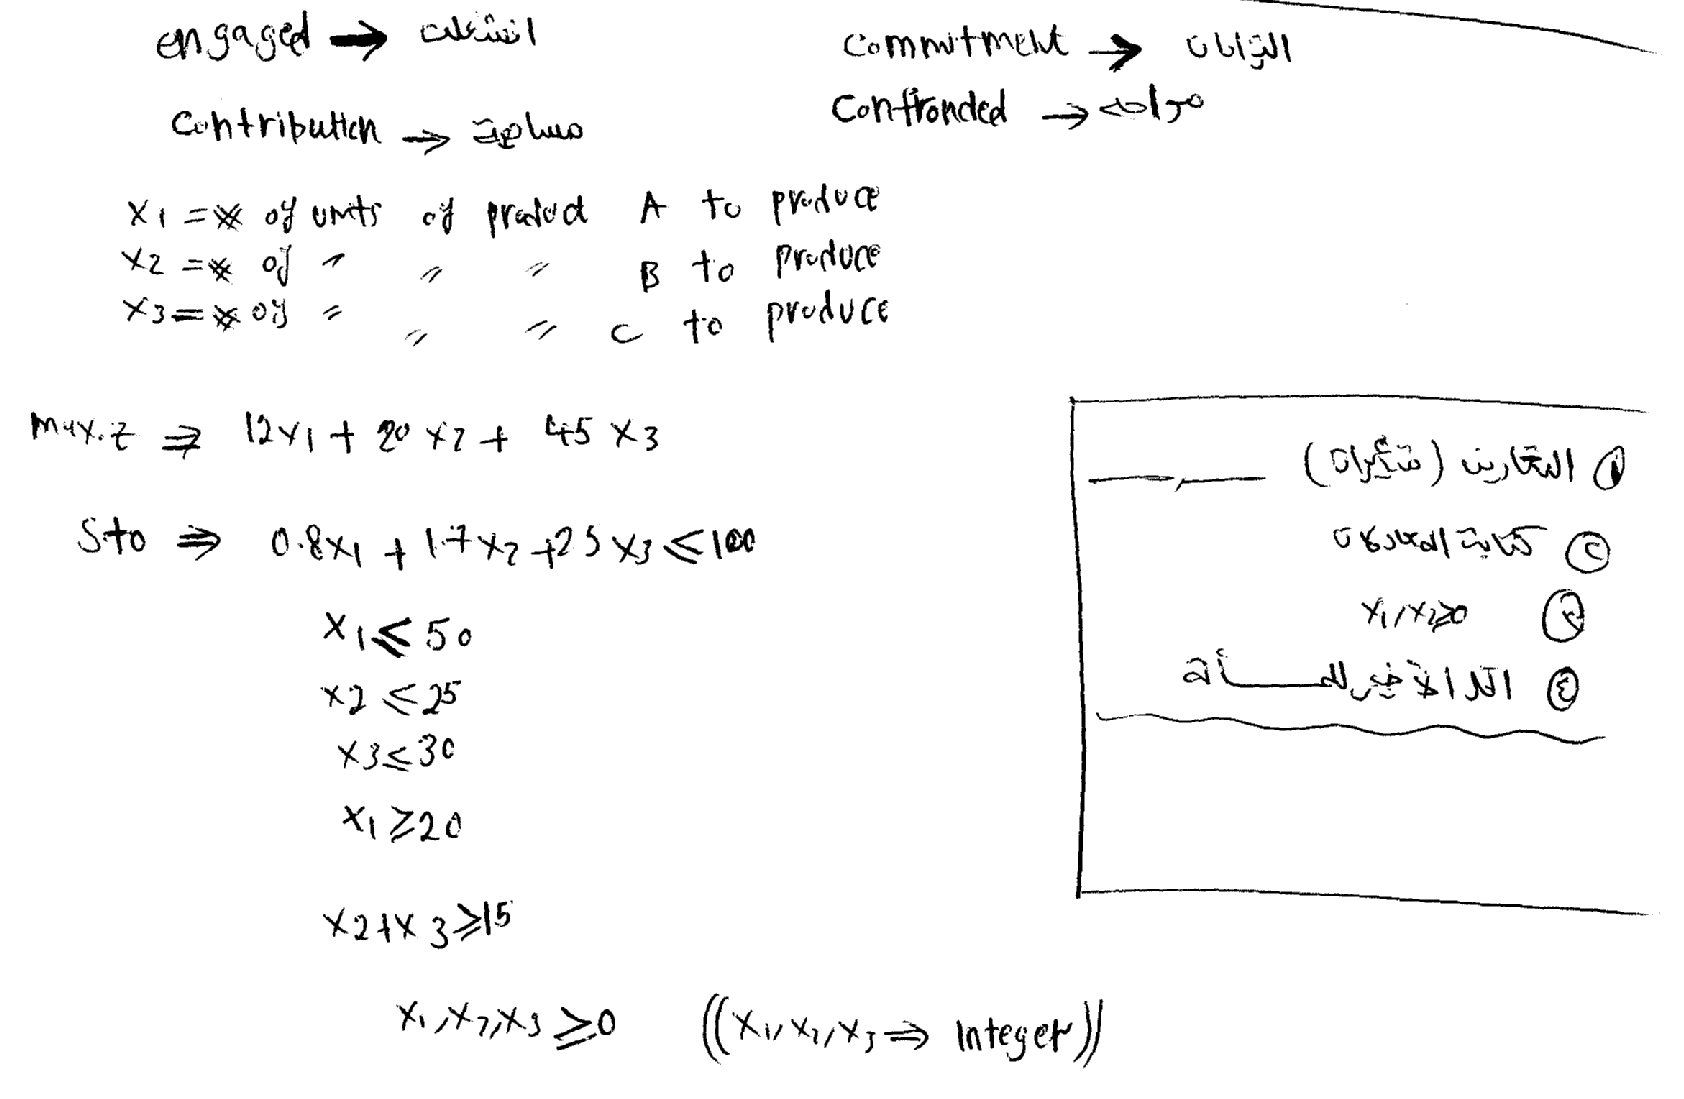 engaged → انشغلت
commitment → التزامات
contribution → مساهمة
Confronded → مواجهه
X1 = # of units of product A to produce
X2 = # of " " " B to produce
X3 = # of " " " C to produce
max.z ⇒ 12x1 + 20x2 + 45x3
Sto ⇒ 0.8x1 + 1.7x2 + 25x3 ≤ 100
x1 ≤ 50
x2 ≤ 25
x3 ≤ 30
x1 ≥ 20
x2+x3 ≥ 15
x1,x2,x3 ≥ 0 ((x1,x2,x3 ⇒ Integer))
① التعاريف (متغيرات)
② كتابة المعادلات
③ x1,x2≥0
④ الأخير للمسألة